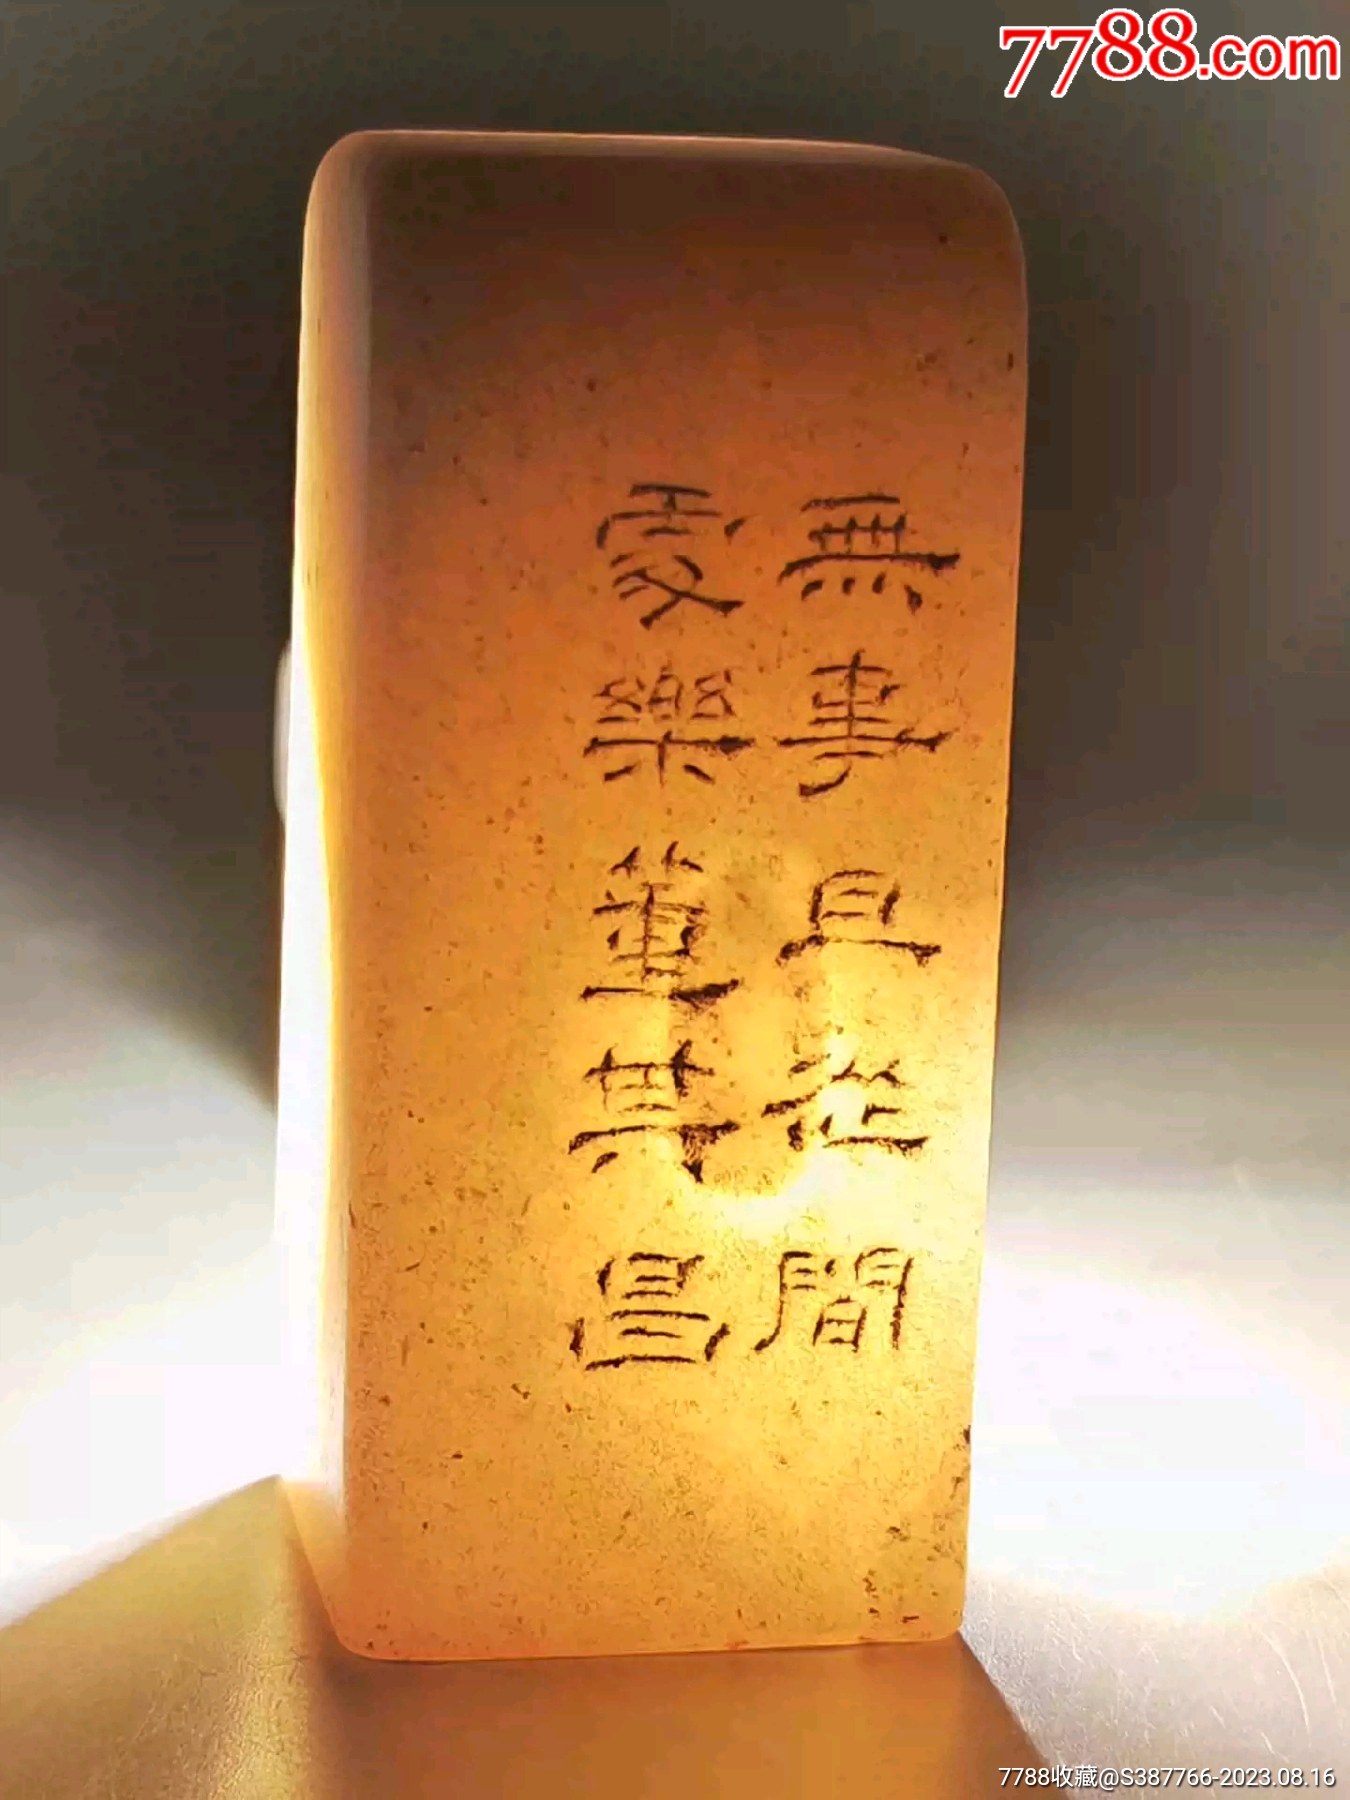 7788.com
無事且從間
處樂董其昌
7788收藏@S387766-2023.08.16